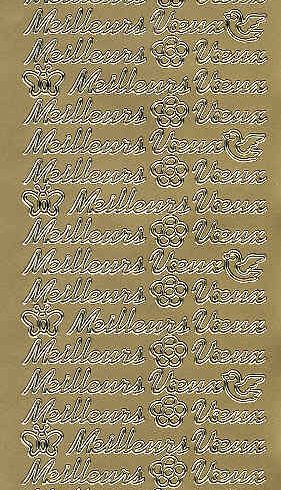 Meilleurs Vœux
Meilleurs Vœux
Meilleurs Vœux
Meilleurs Vœux
Meilleurs Vœux
Meilleurs Vœux
Meilleurs Vœux
Meilleurs Vœux
Meilleurs Vœux
Meilleurs Vœux
Meilleurs Vœux
Meilleurs Vœux
Meilleurs Vœux
Meilleurs Vœux
Meilleurs Vœux
Meilleurs Vœux